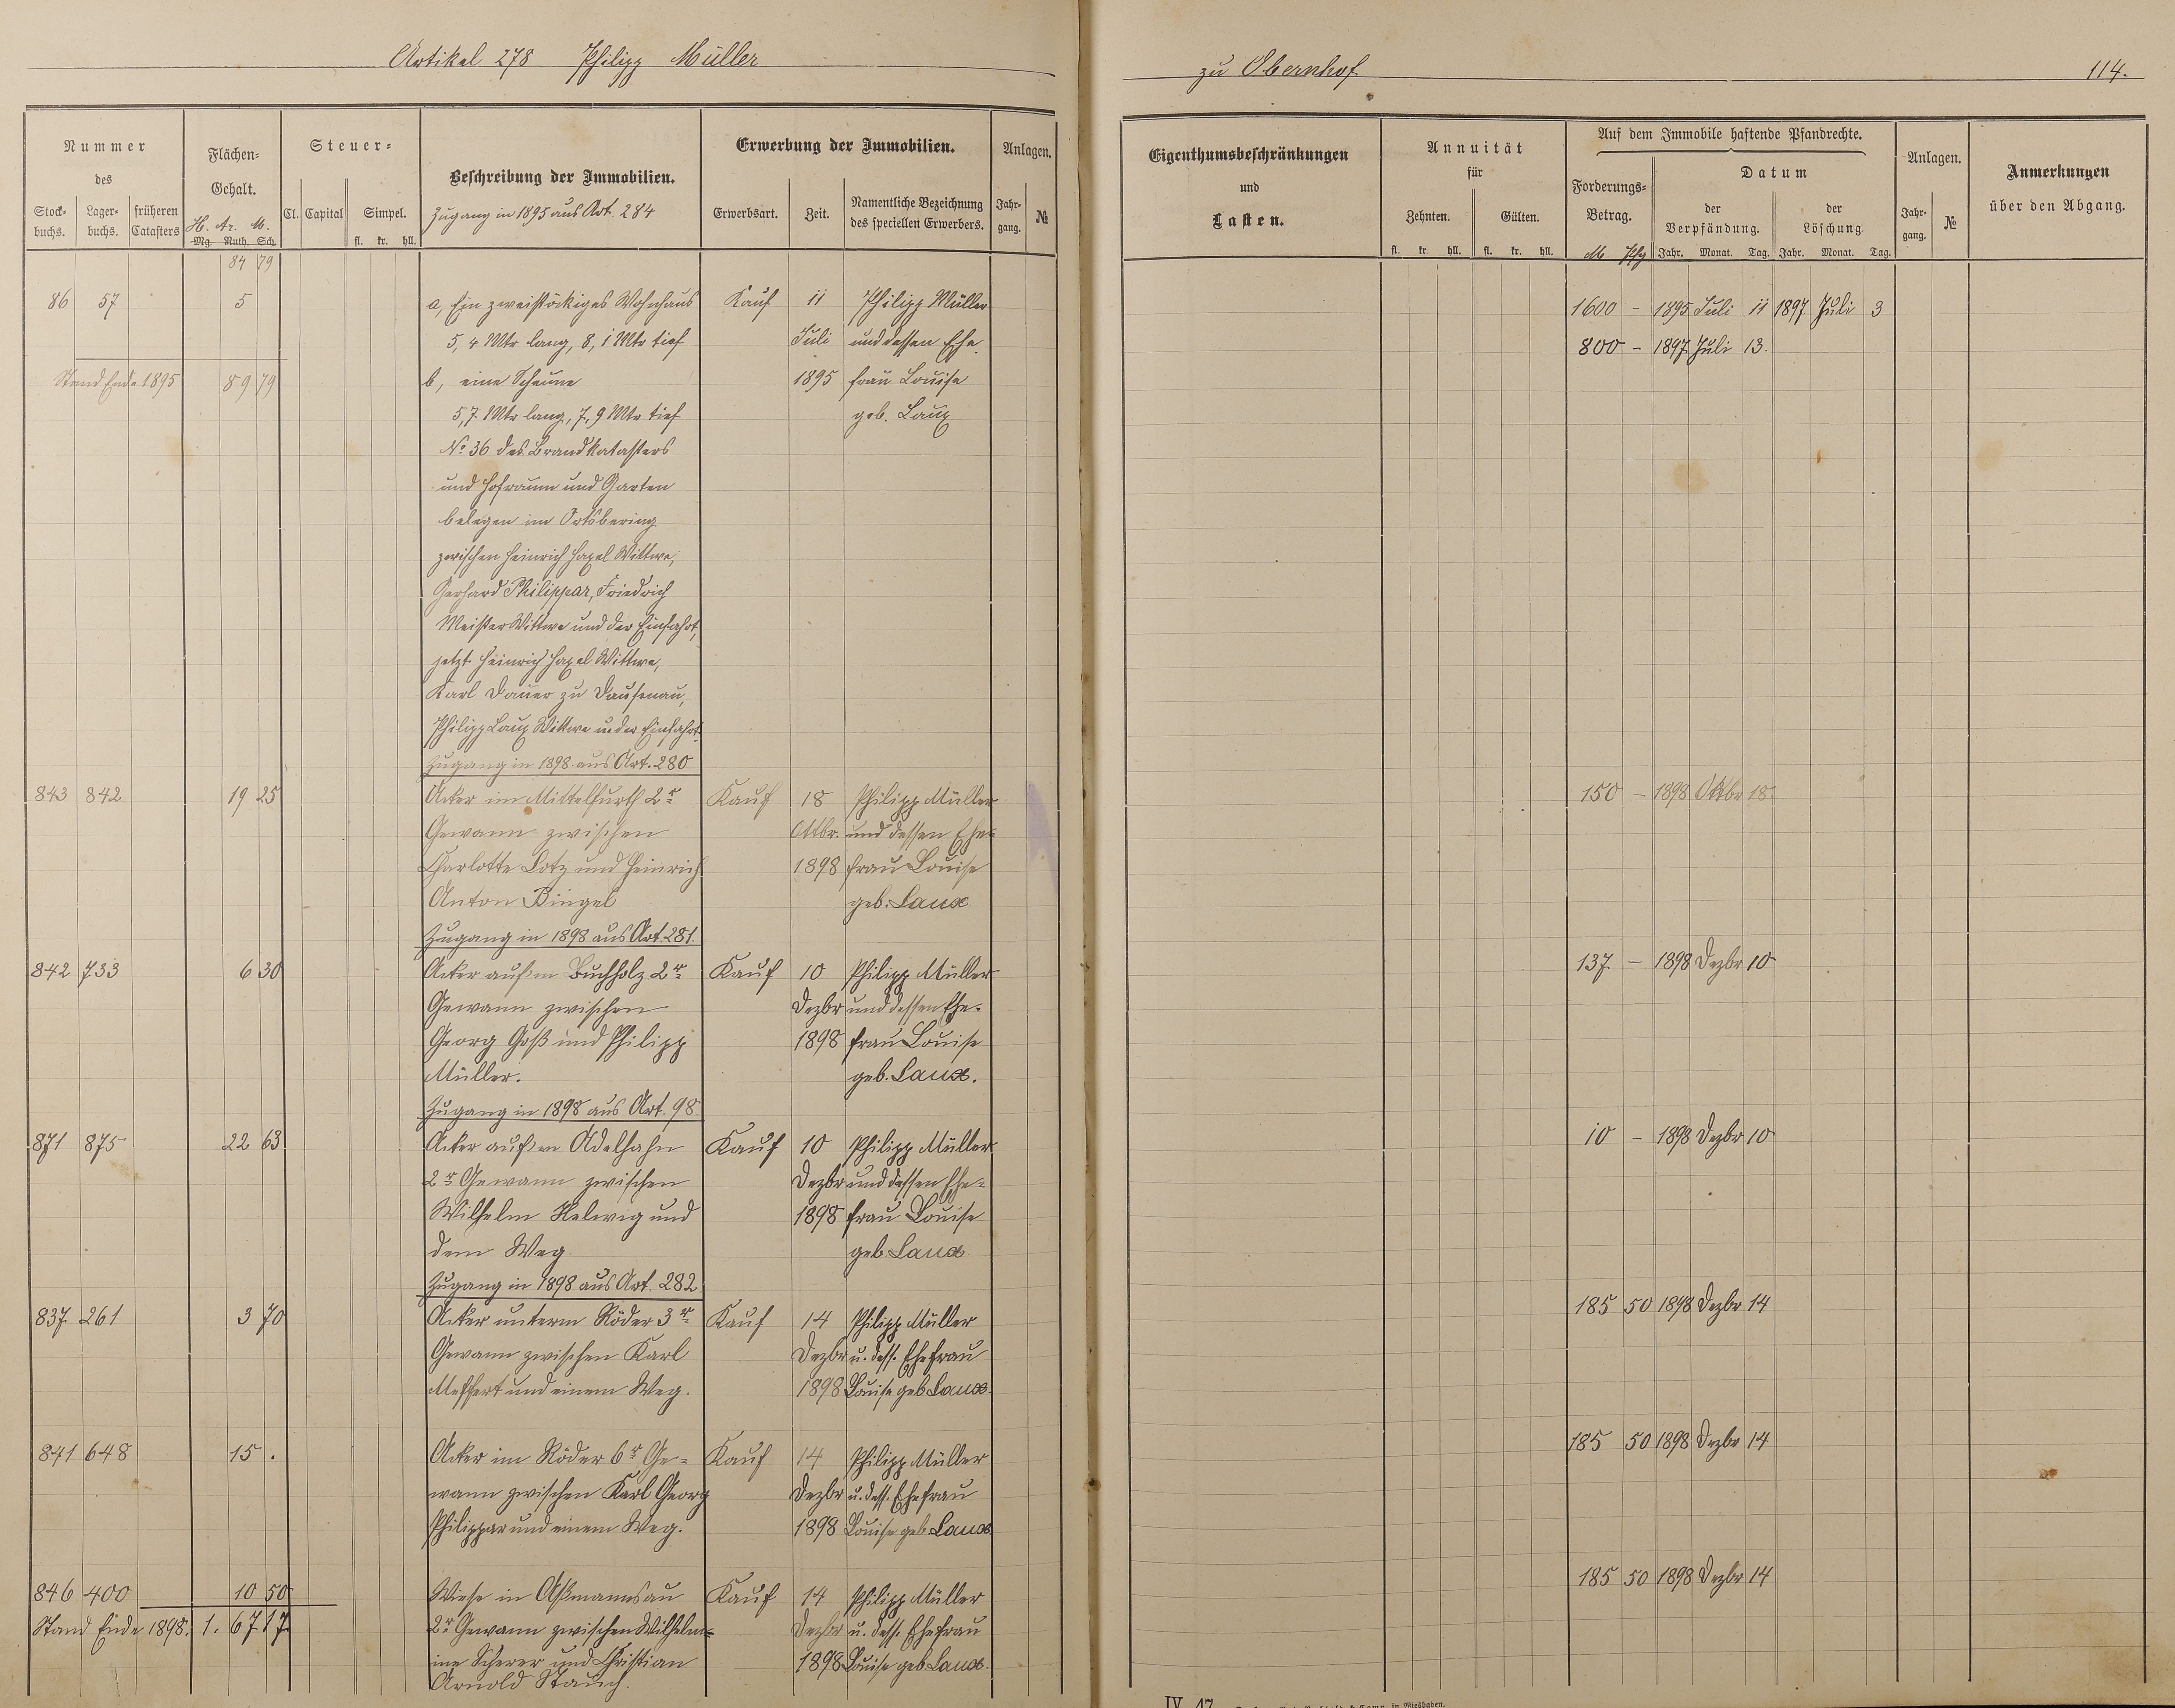 Artikel 278 Philipp Müller
zu Obernhof
114.
Nummer
des
Stock-
buchs.
Lager-
buchs.
früheren
Catasters
Flächen-
Gehalt.
H. Ar. M.
Mg. Ruth. Sch.
Steuer-
Cl. Capital Simpel.
fl. kr. hll.
Beschreibung der Immobilien.
Zugang in 1895 aus Art. 284
Erwerbung der Immobilien.
Erwerbsart. Zeit.
Namentliche Bezeichnung
des speciellen Erwerbers.
Anlagen.
Jahr-
gang.
№
Eigenthumsbeschränkungen
und
Lasten.
Annuität
für
Zehnten. Gülten.
fl. kr. hll. fl. kr. hll.
Auf dem Immobile haftende Pfandrechte.
Forderungs-
Betrag.
M Pfg
Datum
der
Verpfändung.
der
Löschung.
Jahr. Monat. Tag. Jahr. Monat. Tag.
Anlagen.
Jahr-
gang.
№
Anmerkungen
über den Abgang.
84 79
86 57 5 a, Ein zweistöckiges Wohnhaus Kauf 11 Philipp Müller 1600 - 1895 Juli 11 1897 Juli 3
5,4 Mtr lang, 8,1 Mtr tief Juli und dessen Ehe- 800 - 1897 Juli 13.
Stand Ende 1895 89 79 b, eine Scheune 1895 frau Louise
5,7 Mtr lang, 7,9 Mtr tief geb. Laux
No 36 des Brandkatasters
und Hofraum und Garten
belegen im Ortsbering
zwischen Heinrich Haxel Wittwe,
Gerhard Philippar, Friedrich
Meister Wittwe und der Einfahrt,
jetzt Heinrich Haxel Wittwe,
Karl Dauer zu Dausenau,
Philipp Laux Wittwe u. der Einfahrt.
Zugang in 1898 aus Art. 280
843 842 19 25 Acker im Mittelfurth 2r Kauf 18 Philipp Müller 150 - 1898 Oktbr 18.
Gewann zwischen Oktbr. und dessen Ehe-
Charlotte Lotz und Heinrich 1898 frau Louise
Anton Bingel geb. Laux
Zugang in 1898 aus Art. 281.
842 733 6 30 Acker auf'm Buchholz 2r Kauf 10 Philipp Müller 137 - 1898 Dezbr 10
Gewann zwischen Dezbr und dessen Ehe-
Georg Goß und Philipp 1898 frau Louise
Müller. geb. Laux.
Zugang in 1898 aus Art. 98
871 875 22 63 Acker auf'm Adelhahn Kauf 10 Philipp Müller 10 - 1898 Dezbr 10
2r Gewann zwischen Dezbr und dessen Ehe-
Wilhelm Helwig und 1898 frau Louise
dem Weg geb Laux
Zugang in 1898 aus Art. 282.
837 261 3 70 Acker unterm Röder 3r Kauf 14 Philipp Müller 185 50 1898 Dezbr 14
Gewann zwischen Karl Dezbr u. dess. Ehefrau
Meffert und einem Weg. 1898 Louise geb Laux.
841 648 15 . Acker im Röder 6r Ge- Kauf 14 Philipp Müller 185 50 1898 Dezbr 14
wann zwischen Karl Georg Dezbr u. dess. Ehefrau
Philippar und einem Weg. 1898 Louise geb Laux
846 400 10 50 Wiese in Aßmannsau Kauf 14 Philipp Müller 185 50 1898 Dezbr 14
Stand Ende 1898. 1. 67 17 2r Gewann zwischen Wilhelm- Dezbr u. dess. Ehefrau
ine Scherer und Christian 1898 Louise geb Laux.
Arnold Stauch.
IV. 47.
in Wiesbaden.